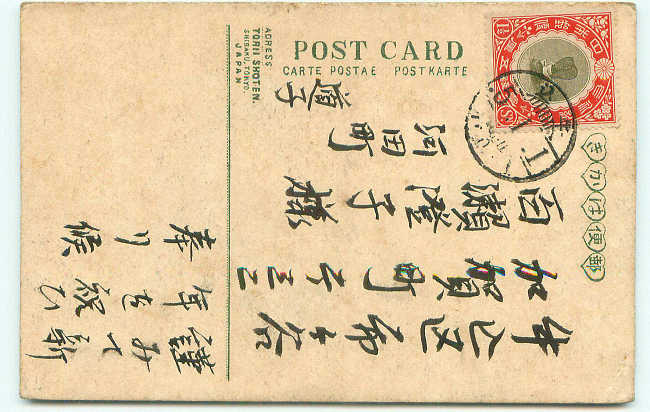 POST CARD
CARTE POSTAE POSTKARTE
ADRESS
TORII SHOTEN.
SHIBAKU, TOKYO.
JAPAN
郵便はかき
牛込区市ヶ谷
加賀町
子様
河田町
謹みて新
年を祝ひ
奉り候